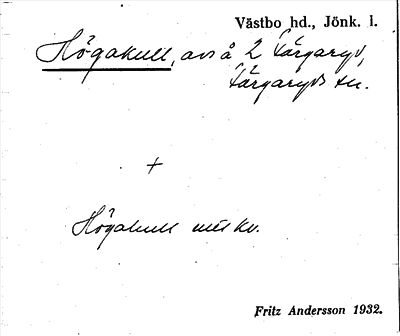 Västbo hd., Jönk. l.
Högakull, avs å 2 Färgaryd,
Färgaryds sn.
+
Högakull mtr kv.
Fritz Andersson 1932.